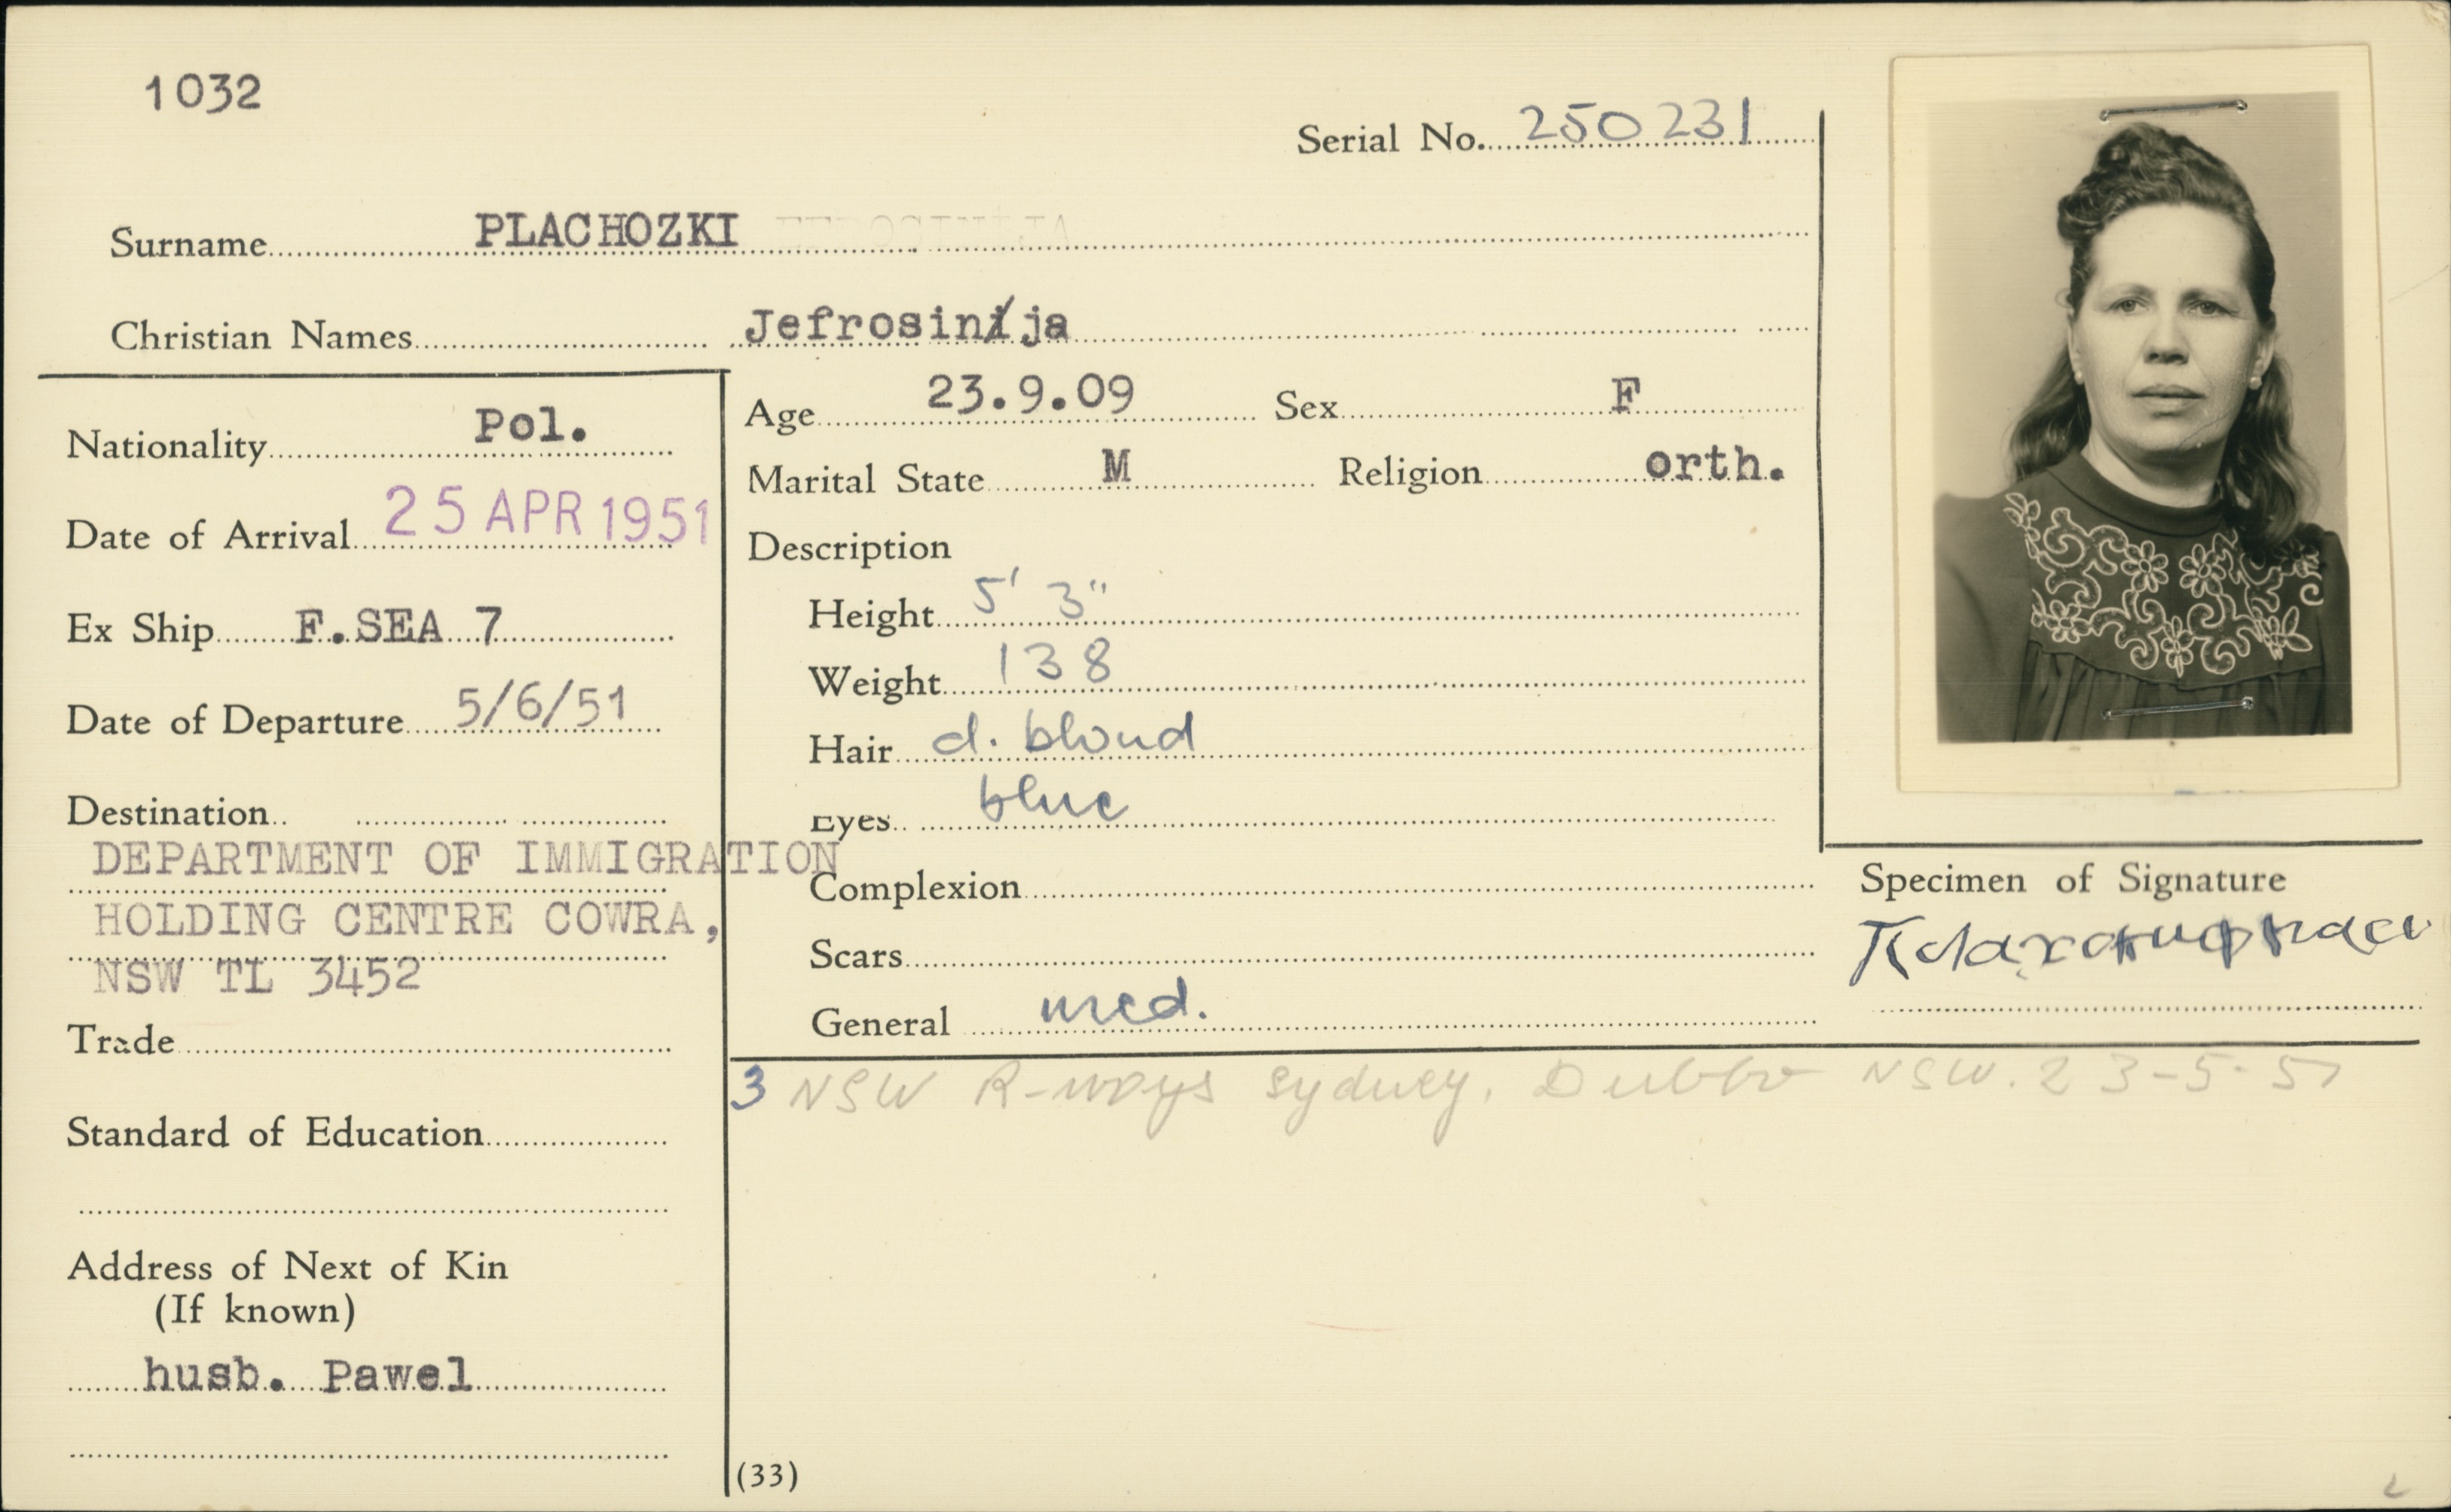 1032
Serial No. 250231
Surname PLACHOZKI
Christian Names Jefrosinija
Nationality Pol.
Date of Arrival 25 APR 1951
Ex Ship F.SEA 7
Date of Departure 5/6/51
Destination
DEPARTMENT OF IMMIGRATION
HOLDING CENTRE COWRA,
NSW TL 3452
Trade
Standard of Education
Address of Next of Kin
(If known)
husb. Pawel
Age 23.9.09 Sex F
Marital State M Religion orth.
Description
Height 5' 3"
Weight 138
Hair d. blond
Eyes blue
Complexion
Scars
General med.
Specimen of Signature
3 NSW R-ways Sydney. Dubbo NSW. 23-5-51
(33)